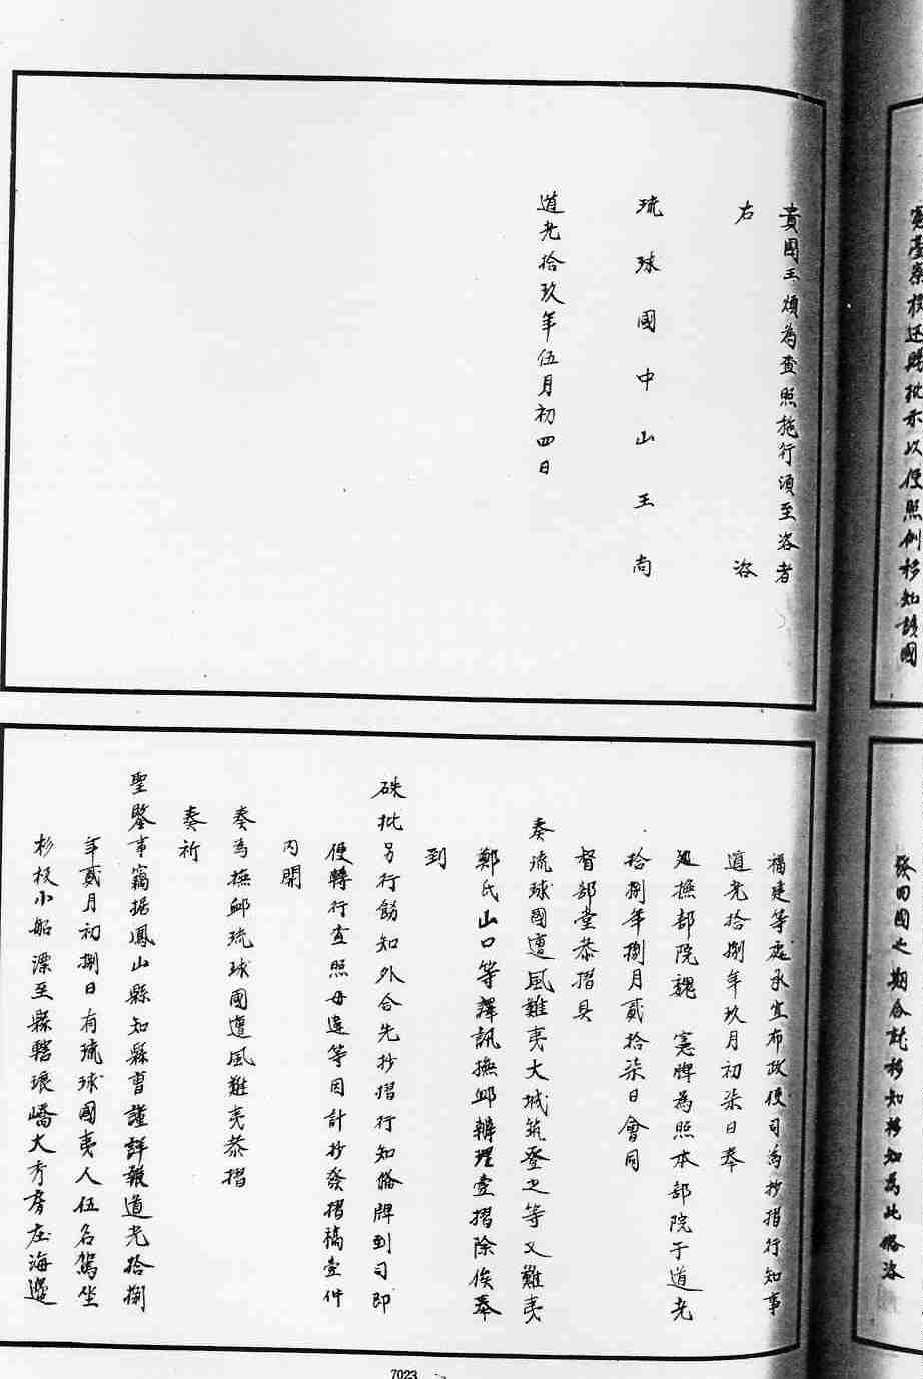 憲臺察核还賜批示以便照例移知該國
發回國之期合就移知移知為此備咨
貴國王煩為查照施行須至咨者
右 咨
琉球國中山王尚
道光拾玖年伍月初四日
福建等處承宣布政使司為抄摺行知事
道光拾捌年玖月初柒日奉
廵撫部院魏 憲牌為照本部院于道光
拾捌年捌月貳拾柒日會同
督部堂恭摺具
奏琉球國遭風難夷大城筑登之等又難夷
鄭氏山口等譯訊撫卹辦理壹摺除俟奉
到
硃批另行飭知外合先抄摺行知俻牌到司即
便轉行查照毋違等因計抄發摺稿壹件
內開
奏為撫卹琉球國遭風難夷恭摺
奏祈
聖鑒事竊据鳳山縣知縣曹謹詳報道光拾捌
年貳月初捌日有琉球國夷人伍名駕坐
杉板小船漂至縣轄琅嶠大秀房庄海邊
7023